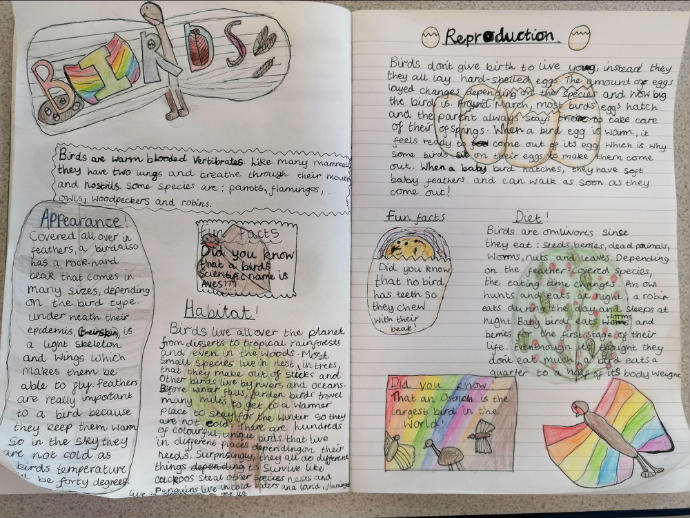 BIRDS
Birds are warm blooded vertibrates. Like many mammals
they have two lungs and breathe through their mouth
and nostrils. Some species are: parots, flamingos,
owls, woodpeckers and robins.
Appearance!
Covered all over in
feathers, a bird also
has a rock-hard
beak that comes in
many sizes, depending
on the bird type.
under neath their
epidemis, is
a light skeleton
and wings which
makes them be
able to fly. Feathers
are really important
to a bird because
they keep them warm
so in the sky they
are not cold as
birds temperature
be forty degrees
Fun Facts
Did you know
that a birds
scientific name is
Aves???
Habitat!
Birds live all over the planet
from desserts to tropical rainforests
and even in the woods. Most
small species live in nest, in trees,
that they make out of sticks and
Other birds live by rivers and oceans.
Before winter falls, garden bird travel
many miles to get to a warmer
place to stay for the winter so they
are not cold. There are hundreds
of colourful, unique birds that live
in different places depending on their
needs. Surprisingly, they all do different
things depending to survive like
cuckoos steal other species nests and
Penguins live in cold waters and land, flamingo
Reproduction
Birds don't give birth to live young, instead they
they all lay hard-shelled eggs. The amound of eggs
layed changes depending on the species and how big
the bird is. Around March, most birds egg hatch
and the parent always stays to take care
of their ofsprings. When a bird egg is warm, it
feels ready to come out of its egg which is why
some birds sit on their eggs to make them come
out. When a baby bird hatches, they have soft
baby feathers and can walk as soon as they
come out!
Fun facts
Did you know
that no bird
has teeth so
they chew
with their
beak!
Diet!
Birds are omlivores sinse
they eat: seeds, berries, dead animals,
Worms, nuts and leaves. Depending
on the feather covered species,
the eating time changes. An owl
hunts and eats at night, a robin
eats during the day and sleeps at
night. Baby bird eats worms and
for the first stage of their
life. Even though it thought they
dont eat much, a bird eats a
quarter to a half of its body weight.
Did you know:
That an Ostrich is the
largest bird in the
world!